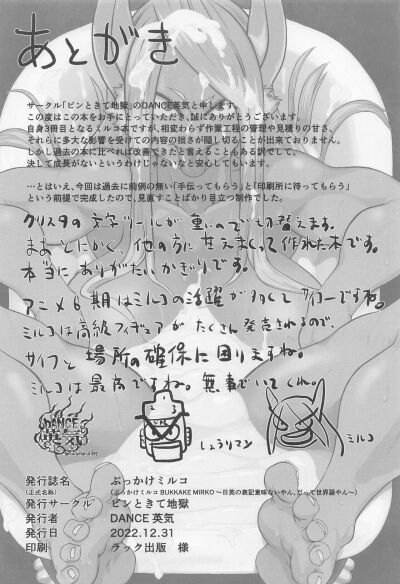 あとがき
サークル「ピンときて地獄」のDANCE英気と申します。
この度はこの本をお手にとっていただき、誠にありがとうございます。
自身3冊目となるミルコ本ですが、相変わらず作業工程の管理や見積りの甘さ、
それらに多大な影響を受けての内容の拙さが隠し切ることが出来ておりません。
しかし過去の本に比べれば改善できたと言えることもある訳でして、
決して成長がないというわけじゃないなと安心してもいます。
…とはいえ、今回は過去に前例の無い「手伝ってもらう」と「印刷所に待ってもらう」
という前提で完成したので、見直すことばかり目立つ制作でした。
クリスタの文字ツールが重いので切替えます。
まあとにかく、他の方に甘えまくって作れた本です。
本当にありがたいかぎりです。
アニメ6期はミルコの活躍が多くてサイコーですね。
ミルコは高級フィギュアがたくさん発売されるので、
サイフと場所の確保に困りますね。
ミルコは最高ですね。無事でいてくれ。
DANCE
英気
しょうりマン
ミルコ
発行誌名 ぶっかけミルコ
(正式名称) (ぶっかけミルコ BUKKAKE MIRKO ～日英の表記意味ないやん、だって世界語やん～)
発行サークル ピンときて地獄
発行者 DANCE 英気
発行日 2022.12.31
印刷 ラック出版 様